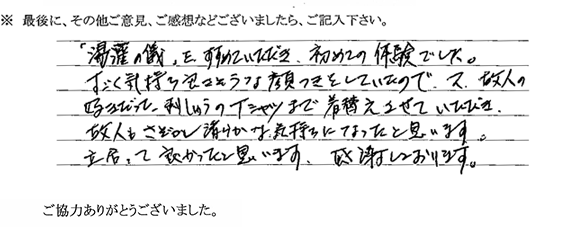 ※ 最後に、その他ご意見、ご感想などございましたら、ご記入下さい。
「湯灌の儀」を、すすめていただき、初めての体験でした。
すごく気持ち良さそうな顔つきをしていたので、又、故人の
好きだった、刺しゅうのTシャツまで着替えさせていただき、
故人もさぞかし清らかな気持ちになったと思います。
立居って良かったと思います。感謝しております。
ご協力ありがとうございました。